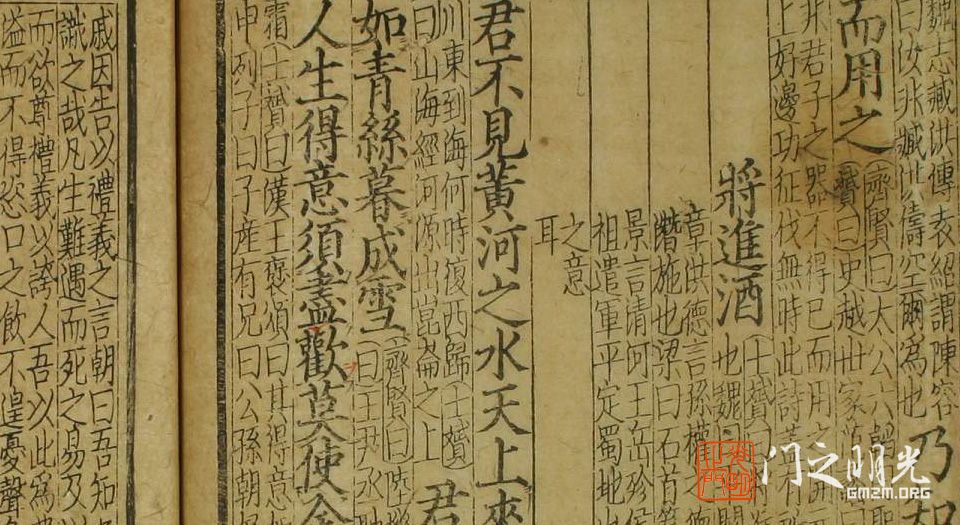 魏志臧洪傳袁紹謂陳容
曰汝非臧洪儔空爾為也 乃知
而用之 齊賢曰太公六韜曰聖
賢曰史越世家
非君子之器不得已而用之
上好邊功征伐無時此詩
將進酒
士贇曰
也魏
章洪德言孫權
僭施也梁曰石首
景言清河王岳殄
祖遣軍平定蜀地
之意
耳
君不見黃河之水天上來
川東到海何時復西歸士贇
曰山海經河源出崑崙之上 君
如青絲暮成雪 齊賢曰陸
曰王尹
人生得意須盡歡莫使金
霜士贇曰漢王褒頌曰其得意
申列子曰子產有兄曰公孫朝
戚因告以禮義之言朝曰吾知
識之哉凡生難遇而死之易及以
而欲尊禮義以誇人吾以此為
溢而不得恣口之飲不遑憂聲
门之明光
GMZM.ORG